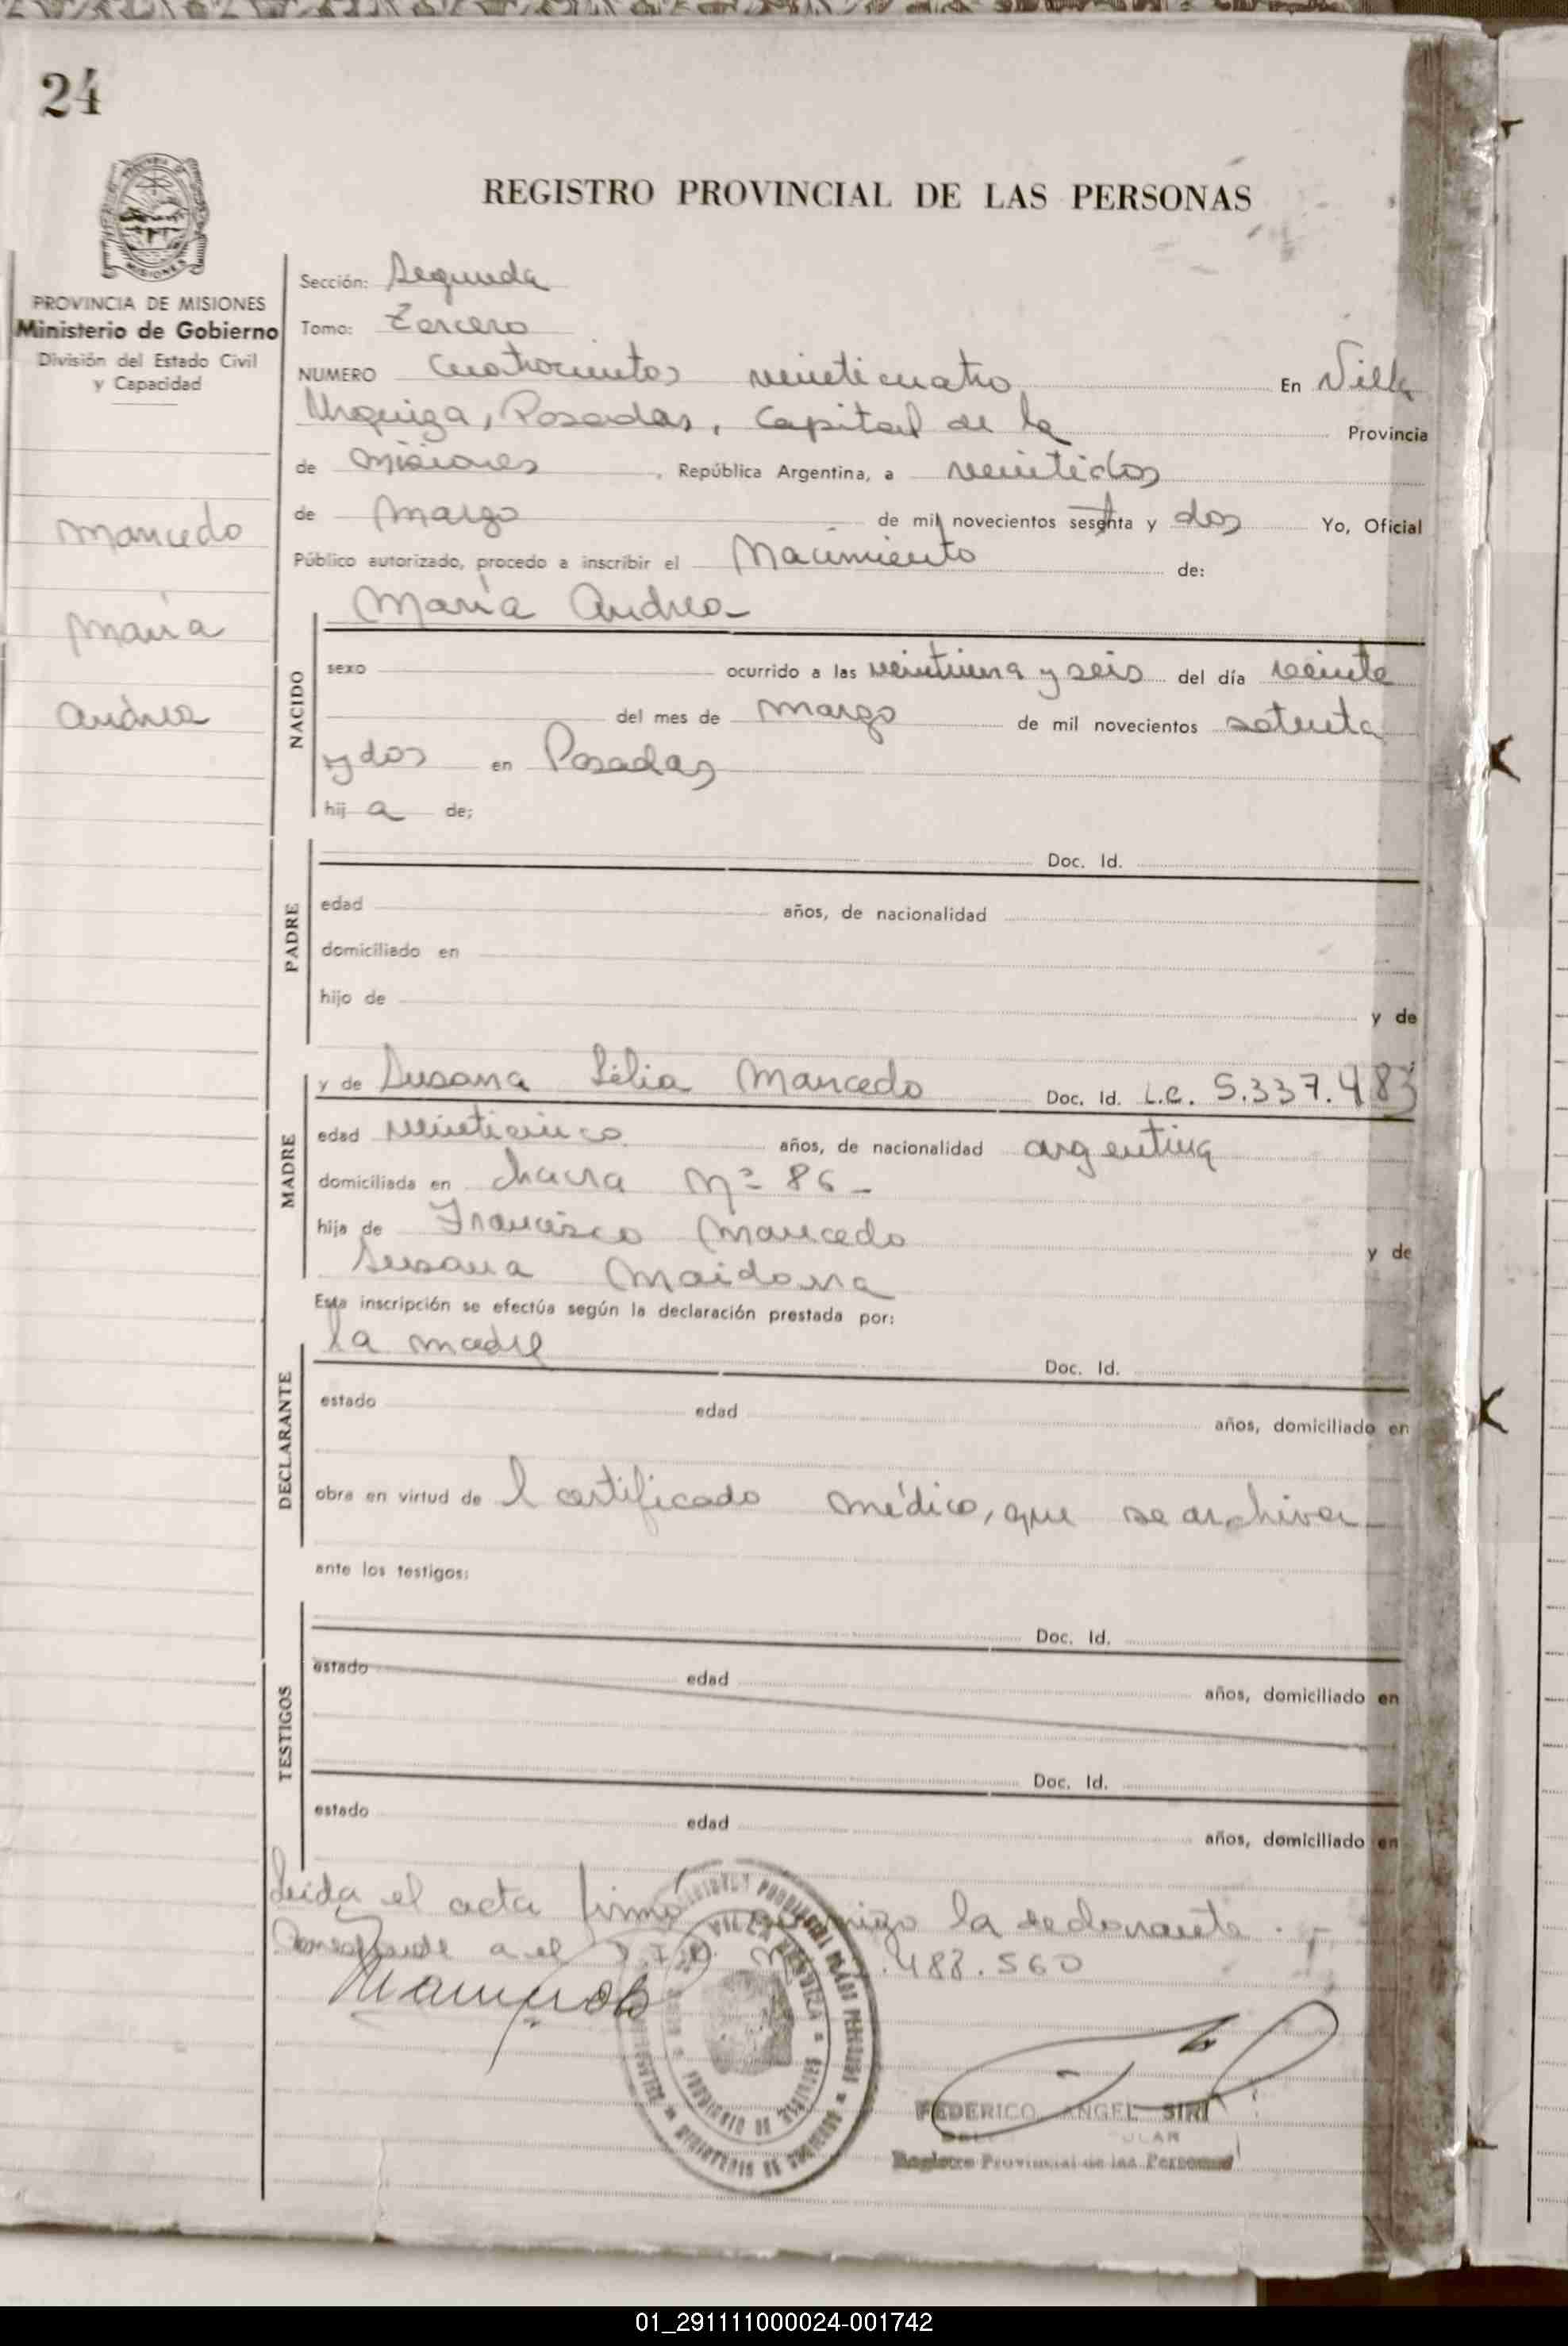 24
REGISTRO PROVINCIAL DE LAS PERSONAS
PROVINCIA DE MISIONES
Ministerio de Gobierno
División del Estado Civil
y Capacidad
Mancedo
María
Andrea
Sección: Segunda
Tomo: Tercero
NUMERO Cuatrocientos veinticuatro En Villa
Urquiza, Posadas, Capital de la Provincia
de Misiones, República Argentina, a veintidos
de Marzo de mil novecientos sesenta y dos Yo, Oficial
Público autorizado, procedo a inscribir el Nacimiento de:
María Andrea
NACIDO
sexo ocurrido a las veintiuna y seis del día veinte
del mes de Marzo de mil novecientos setenta
y dos en Posadas
hij a de;
PADRE
Doc. Id.
edad años, de nacionalidad
domiciliado en
hijo de y de
MADRE
y de Susana Lélia Mancedo Doc. Id. L.C. 5.337.483
edad veinticinco años, de nacionalidad argentina
domiciliada en chacra Nº 86 -
hija de Francisco Mancedo y de
Susana Maidana
Esta inscripción se efectúa según la declaración prestada por:
DECLARANTE
la madre Doc. Id.
estado edad años, domiciliado en
obra en virtud de l certificado médico, que se archiva
ante los testigos:
TESTIGOS
Doc. Id.
estado edad años, domiciliado en
Doc. Id.
estado edad años, domiciliado en
Leida el acta firmó conmigo la declarante.
a el .488.560
REGISTRO PROVINCIAL DE LAS PERSONAS
VILLA URQUIZA
PROVINCIA DE MISIONES
MINISTERIO DE GOBIERNO
FEDERICO ANGEL SIRI
Registro Provincial de las Personas
01_291111000024-001742